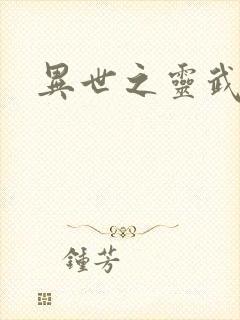 異世之靈武
鍾芳